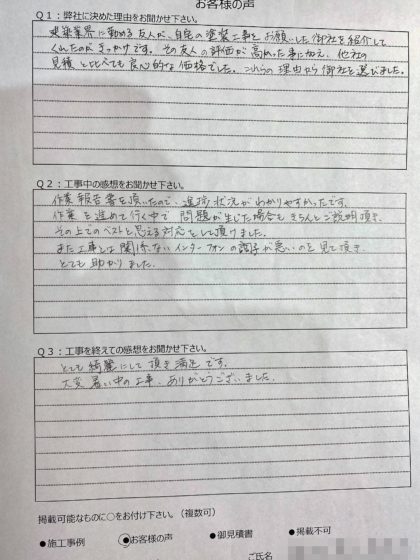 お客様の声
Q1：弊社に決めた理由をお聞かせ下さい。
建築業界に勤める友人が、自宅の塗装工事をお願いした御社を紹介して
くれたのがきっかけです。その友人の評価が高かった事に加え、他社の
見積と比べても良心的な価格でした。これらの理由から御社を選びました。
Q2：工事中の感想をお聞かせ下さい。
作業報告書を頂いたので、進捗状況がわかりやすかったです。
作業を進めて行く中で問題が生じた場合もきちんとご説明頂き、
その上でのベストと思える対応をして頂けました。
また工事とは関係ないインターフォンの調子が悪いのを見て頂き、
とても助かりました。
Q3：工事を終えての感想をお聞かせ下さい。
とても綺麗にして頂き満足です。
大変暑い中の工事、ありがとうございました。
掲載可能なものに○をお付け下さい。（複数可）
●施工事例 ●お客様の声 ●御見積書 ●掲載不可
ご氏名